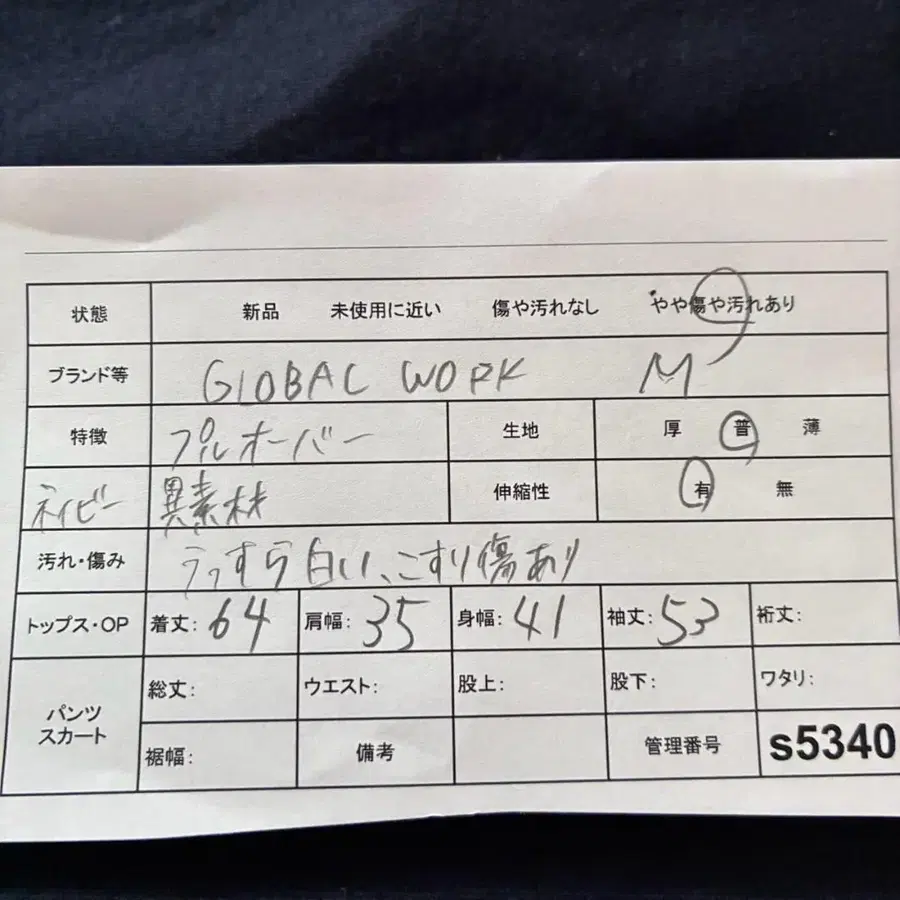 状態 新品 未使用に近い 傷や汚れなし やや傷や汚れあり
ブランド等 GLOBAL WORK M
特徴 プルオーバー 生地 厚 普 薄
ネイビー 異素材 伸縮性 有 無
汚れ・傷み うっすら白い、こすり傷あり
トップス・OP 着丈: 64 肩幅: 35 身幅: 41 袖丈: 53 裄丈:
パンツ スカート 総丈: ウエスト: 股上: 股下: ワタリ:
裾幅: 備考 管理番号 s5340